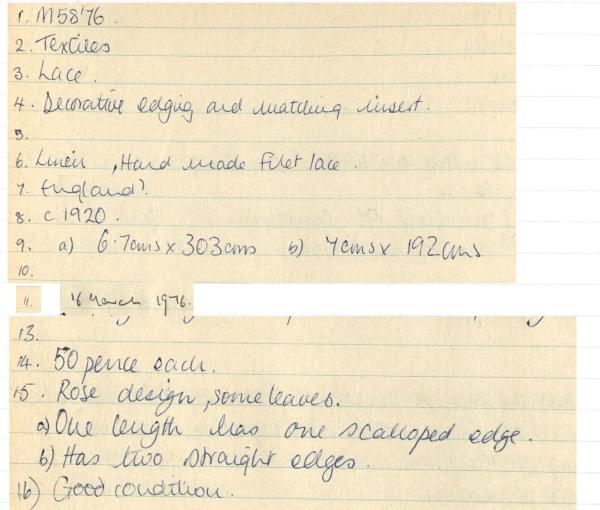 1. M58'76.
2. Textiles
3. Lace.
4. Decorative edging and matching insert.
5.
6. Linen, Hand made Filet lace.
7. England?
8. c 1920.
9. a) 6.7cms x 303cms b) 7cms x 192cms
10.
11. 16 March 1976.
13.
14. 50 pence each.
15. Rose design, some leaves.
a) One length has one scalloped edge.
b) Has two straight edges.
16) Good condition.